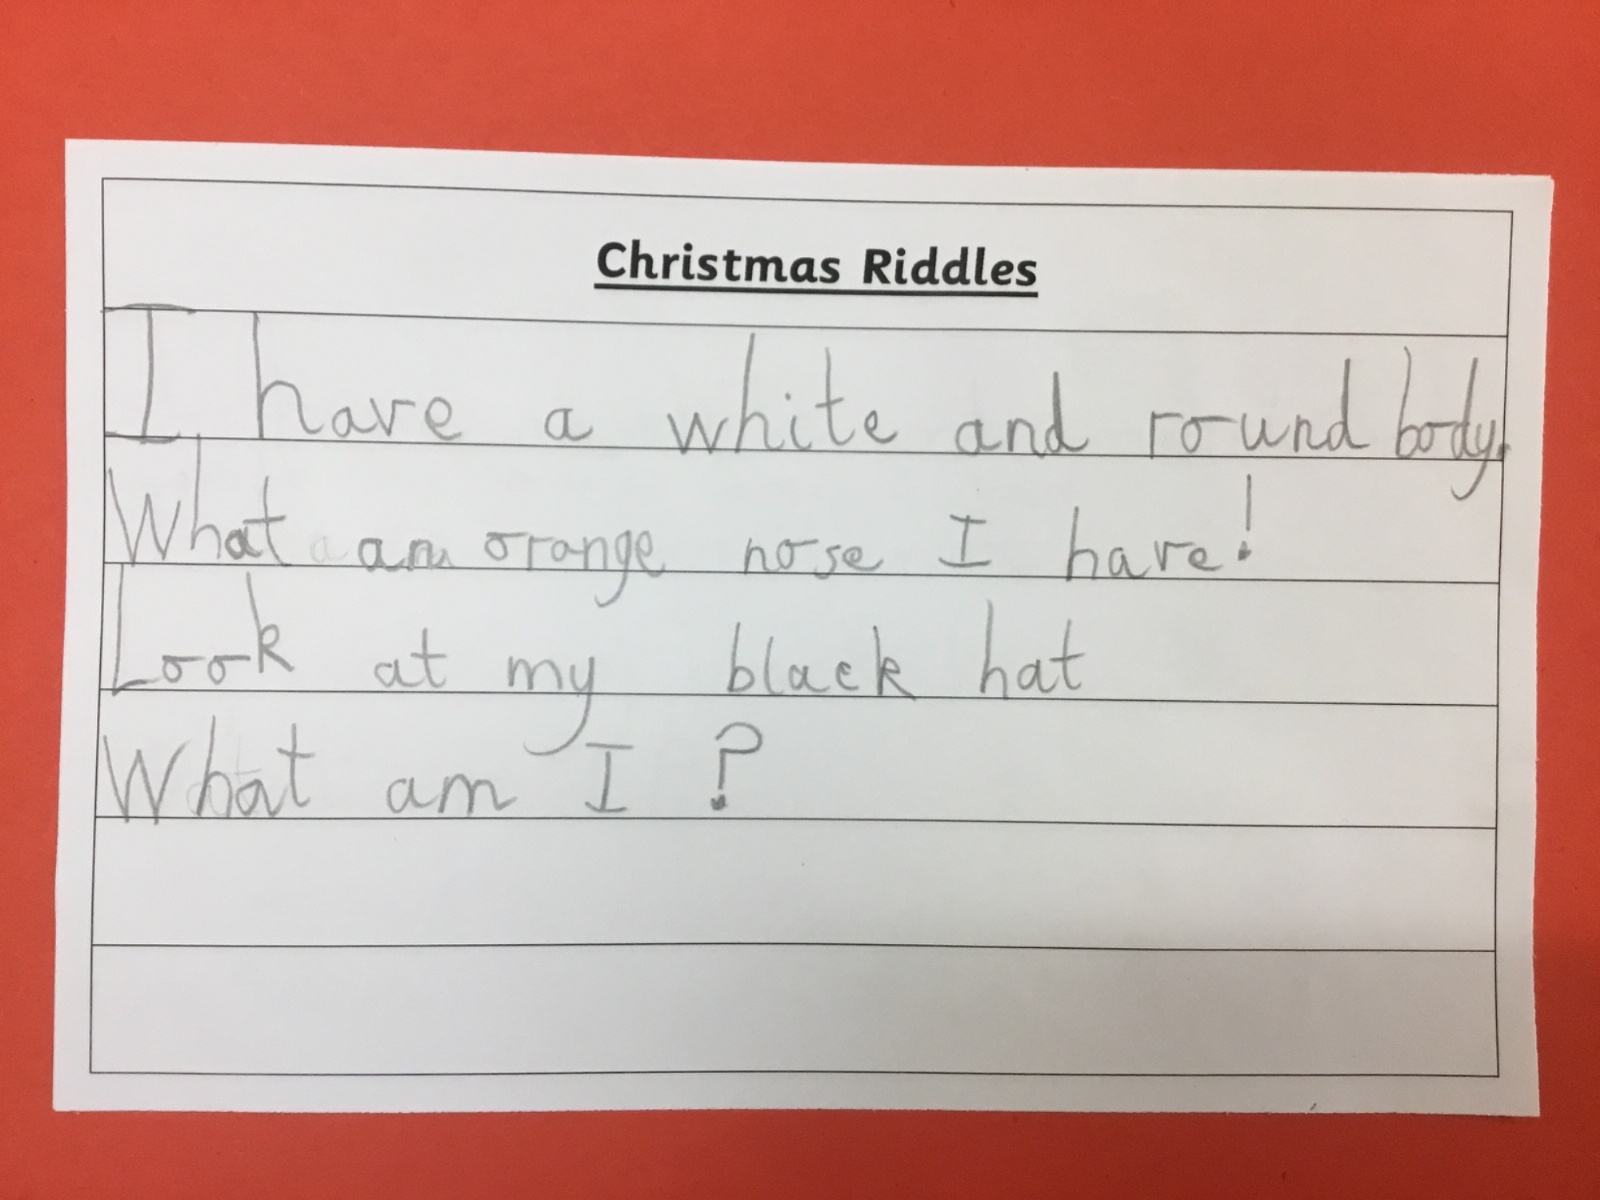 Christmas Riddles
I have a white and round body.
What an orange nose I have!
Look at my black hat
What am I ?